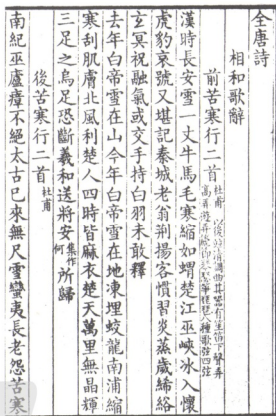 全唐詩
相和歌辭
前苦寒行二首杜甫 清調曲其器有笙笛下聲弄
高弄遊弄篪節琴瑟箏琵琶八種歌弦四弦
漢時長安雪一丈牛馬毛寒縮如蝟楚江巫峽冰入懷
虎豹哀號又堪記秦城老翁荆揚客慣習炎蒸歲絺綌
玄冥祝融氣或交手持白羽未敢釋
去年白帝雪在山今年白帝雪在地凍埋蛟龍南浦縮
寒刮肌膚北風利楚人四時皆麻衣楚天萬里無晶輝
三足之烏足恐斷羲和送將安集作何所歸
後苦寒行二首杜甫
南紀巫廬瘴不絕太古已來無尺雪蠻夷長老怨苦寒